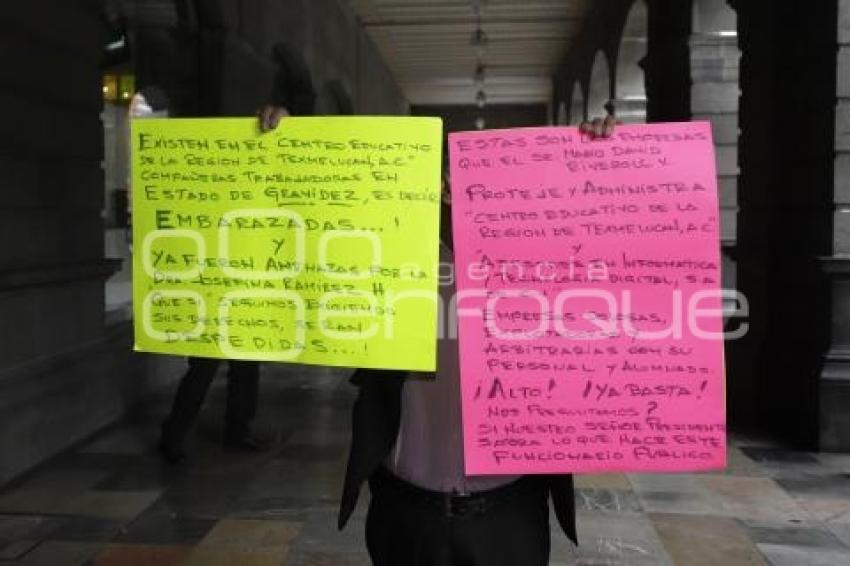 EXISTEN EN EL "CENTRO EDUCATIVO
DE LA REGIÓN DE TEXMELUCAN, A.C"
COMPAÑERAS TRABAJADORAS EN
ESTADO DE GRAVIDEZ, ES DECIR
EMBARAZADAS...!
Y
YA FUERON AMENAZAS POR LA
DRA. JOSEFINA RAMÍREZ H
QUE SI SEGUIMOS EXIGIENDO
SUS DERECHOS, SERAN
DESPEDIDAS...!
ESTAS SON LAS EMPRESAS
QUE EL SR. MARIO DAVID
RIVEROLL V.
PROTEJE Y ADMINISTRA
"CENTRO EDUCATIVO DE LA
REGION DE TEXMELUCAN, A.C"
Y
EN INFORMATICA
Y TECNOLOGIA DIGITAL, S.A
EMPRESAS
EXPLOTADORAS Y
ARBITRARIAS CON SU
PERSONAL Y ALUMNADO.
¡ALTO! ¡YA BASTA!
NOS PREGUNTAMOS?
SI NUESTRO SEÑOR PRESIDENTE
SABRA LO QUE HACE ESTE
FUNCIONARIO PUBLICO
agencia
enfoque